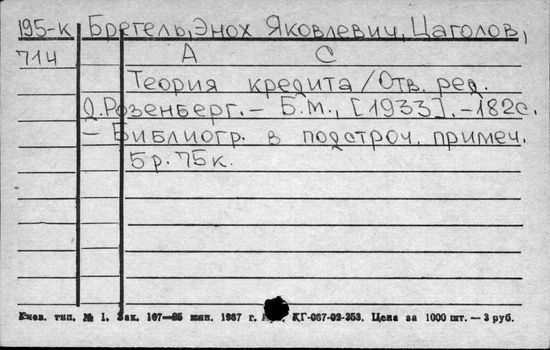 195-к Брегель, Энох Яковлевич, Цаголов,
714 А С
Теория кредита / Отв. ред.
Д. Розенберг. – Б.м., [1933]. – 182с.
– Библиогр. в подстроч. примеч.
5р. 75к.
Киев. тип. № 1. Зак. 107—25 млн. 1987 г. КГ-087-02-253. Цена за 1000 шт. — 3 руб.